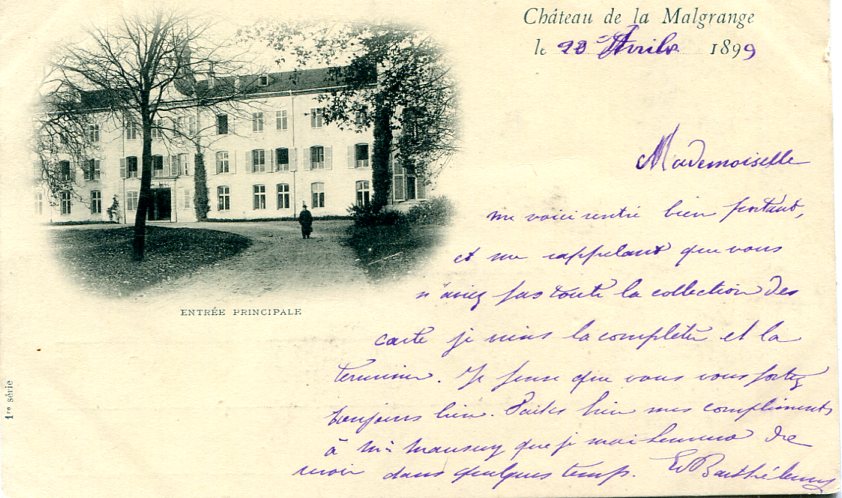 Château de la Malgrange
le Avril 1899
Mademoiselle
me voici rentré bien portant,
et me rappelant que vous
n'aviez pas toute la collection des
carte je viens la compléter et la
terminer. Je pense que vous vous portez
toujours bien. Faites bien mes compliments
à que je
revoir dans quelques temps. E Barthélemy
ENTRÉE PRINCIPALE
1re série